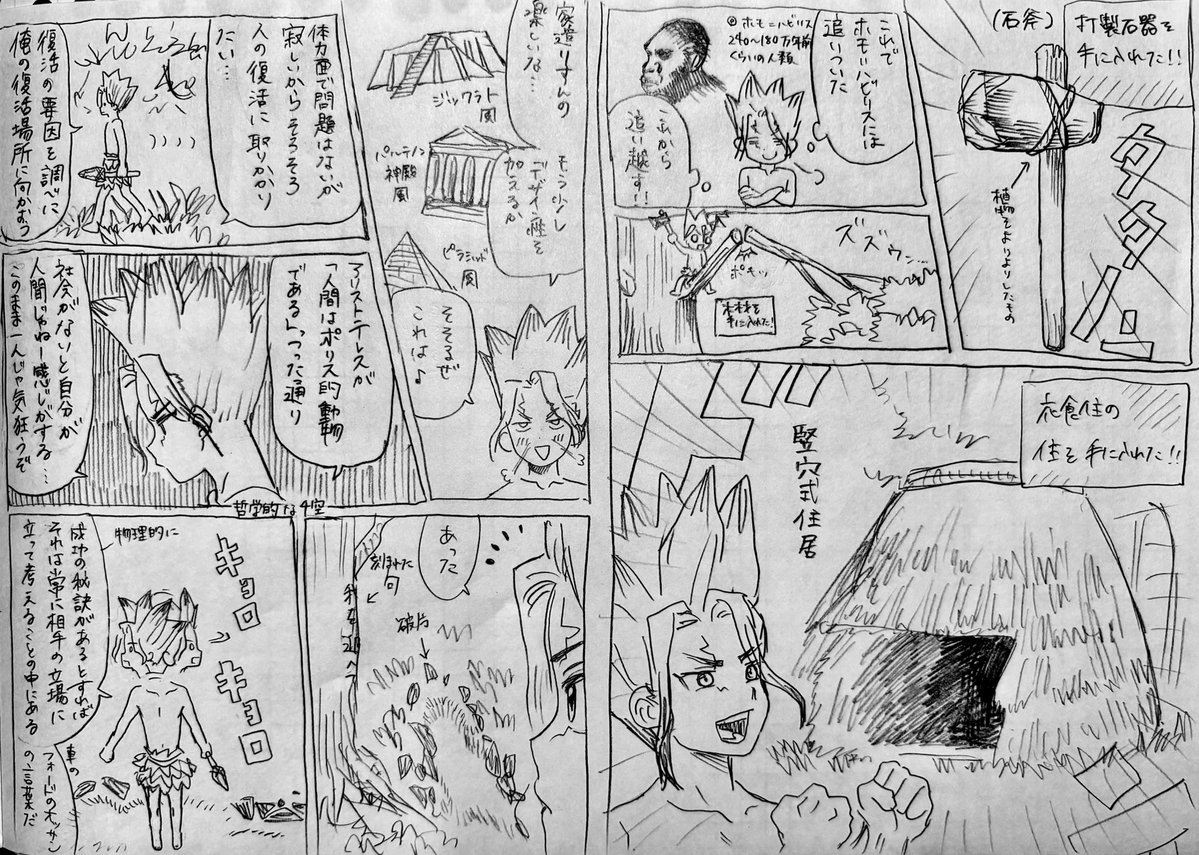 (石斧)
打製石器を
手に入れた!!
タタタン
植物をよりよりしたもの
これで
ホモ・ハビリスには
追いついた
◎ホモ=ハビリス
240〜180万年前
くらいの人類
これから
追い越す!!
ズズゥン…
ポキッ
木材を
手に入れた!
衣食住の
住を手に入れた!!
竪穴式住居
家造りすんの
楽しいな…
もう少し
デザイン性を
加えるか
ジッグラト
風
パルテノン
神殿
風
ピラミッド
風
そそるぜ
これは♪
体力面で問題はないが
寂しいからそろそろ
人の復活に取りかかり
たい…
復活の要因を調べに
俺の復活場所に向かおう
アリストテレスが
「人間はポリス的動物
である」つった通り
社会がないと自分が
人間じゃねー感じがする…
このまま一人じゃ気狂うぞ
哲学的な千空
あった
刻まれた
句
破片
キョロ
キョロ
物理的に
成功の秘訣があるとすれば
それは常に相手の立場に
立って考えることの中にある
車の
フォードのオッサン
の言葉だ